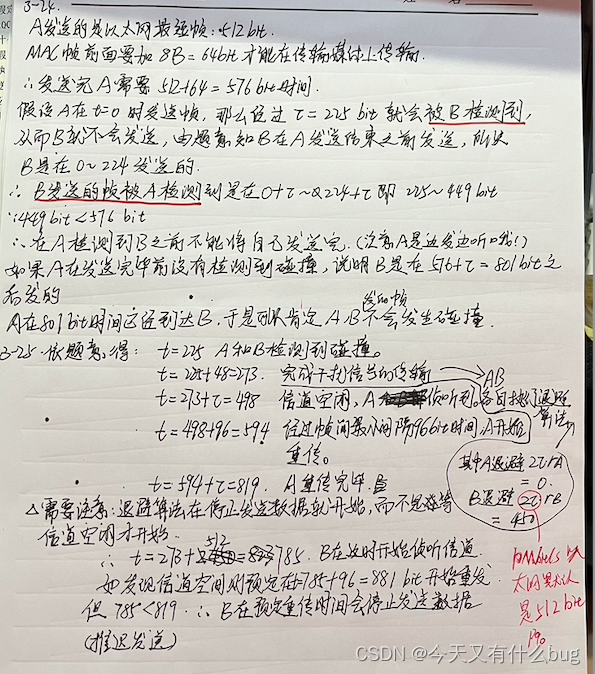 3-24.
A发送的是以太网最短帧:512bit.
MAC帧前面要加8B=64bit才能在传输媒体上传输.
∴发送完A需要 512+64=576bit时间.
假设A在t=0时发送帧,那么经过τ=225 bit就会被B检测到,
从而B就不会发送,由题意知B在A发送结束之前发送,所以
B是在0~224发送的.
∴B发送的帧被A检测到是在0+τ~224+τ即 225~449 bit
∵449bit<576 bit
∴在A检测到B之前不能将自己发送完.(注意A是边发边听的哦!)
如果A在发送完毕前没有检测到碰撞,说明B是在576+τ=801bit之
后发的
发的帧
A在801bit时间已经到达B,于是可以肯定A.B不会发生碰撞.
3-25.依题意得: t=225 A和B检测到碰撞。
t=225+48=273. 完成干扰信号的传输
AB
t=273+τ=498 信道空闲,A侦听到.各自执行退避
算法
t=498+96=594 经过帧间最小间隔96bit时间,A开始
重传。
其中A退避2τrA
=0.
t=594+τ=819. A重传完毕.
B退避2τrB
=450
△需要注意:退避算法在停止发送数据就开始,而不是等
信道空闲才开始.
512
∴t=273+ = 785. B在这时开始侦听信道
如发现信道空闲则预定在785+96=881 bit开始重发.
但785<819.∴B在预定重传时间会停止发送数据
(推迟发送)
10Mbit/s以
太网默认
是512bit
的。
CSDN @今天又有什么bug